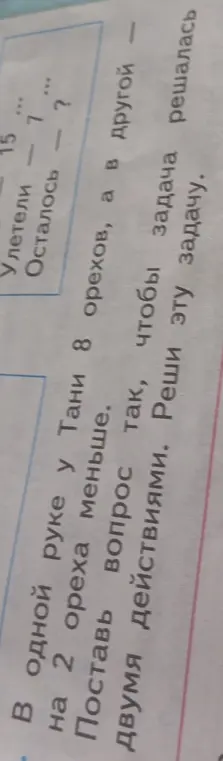 15 ...
Улетели — 7 ...
Осталось — ?
В одной руке у Тани 8 орехов, а в другой —
на 2 ореха меньше.
Поставь вопрос так, чтобы задача решалась
двумя действиями. Реши эту задачу.